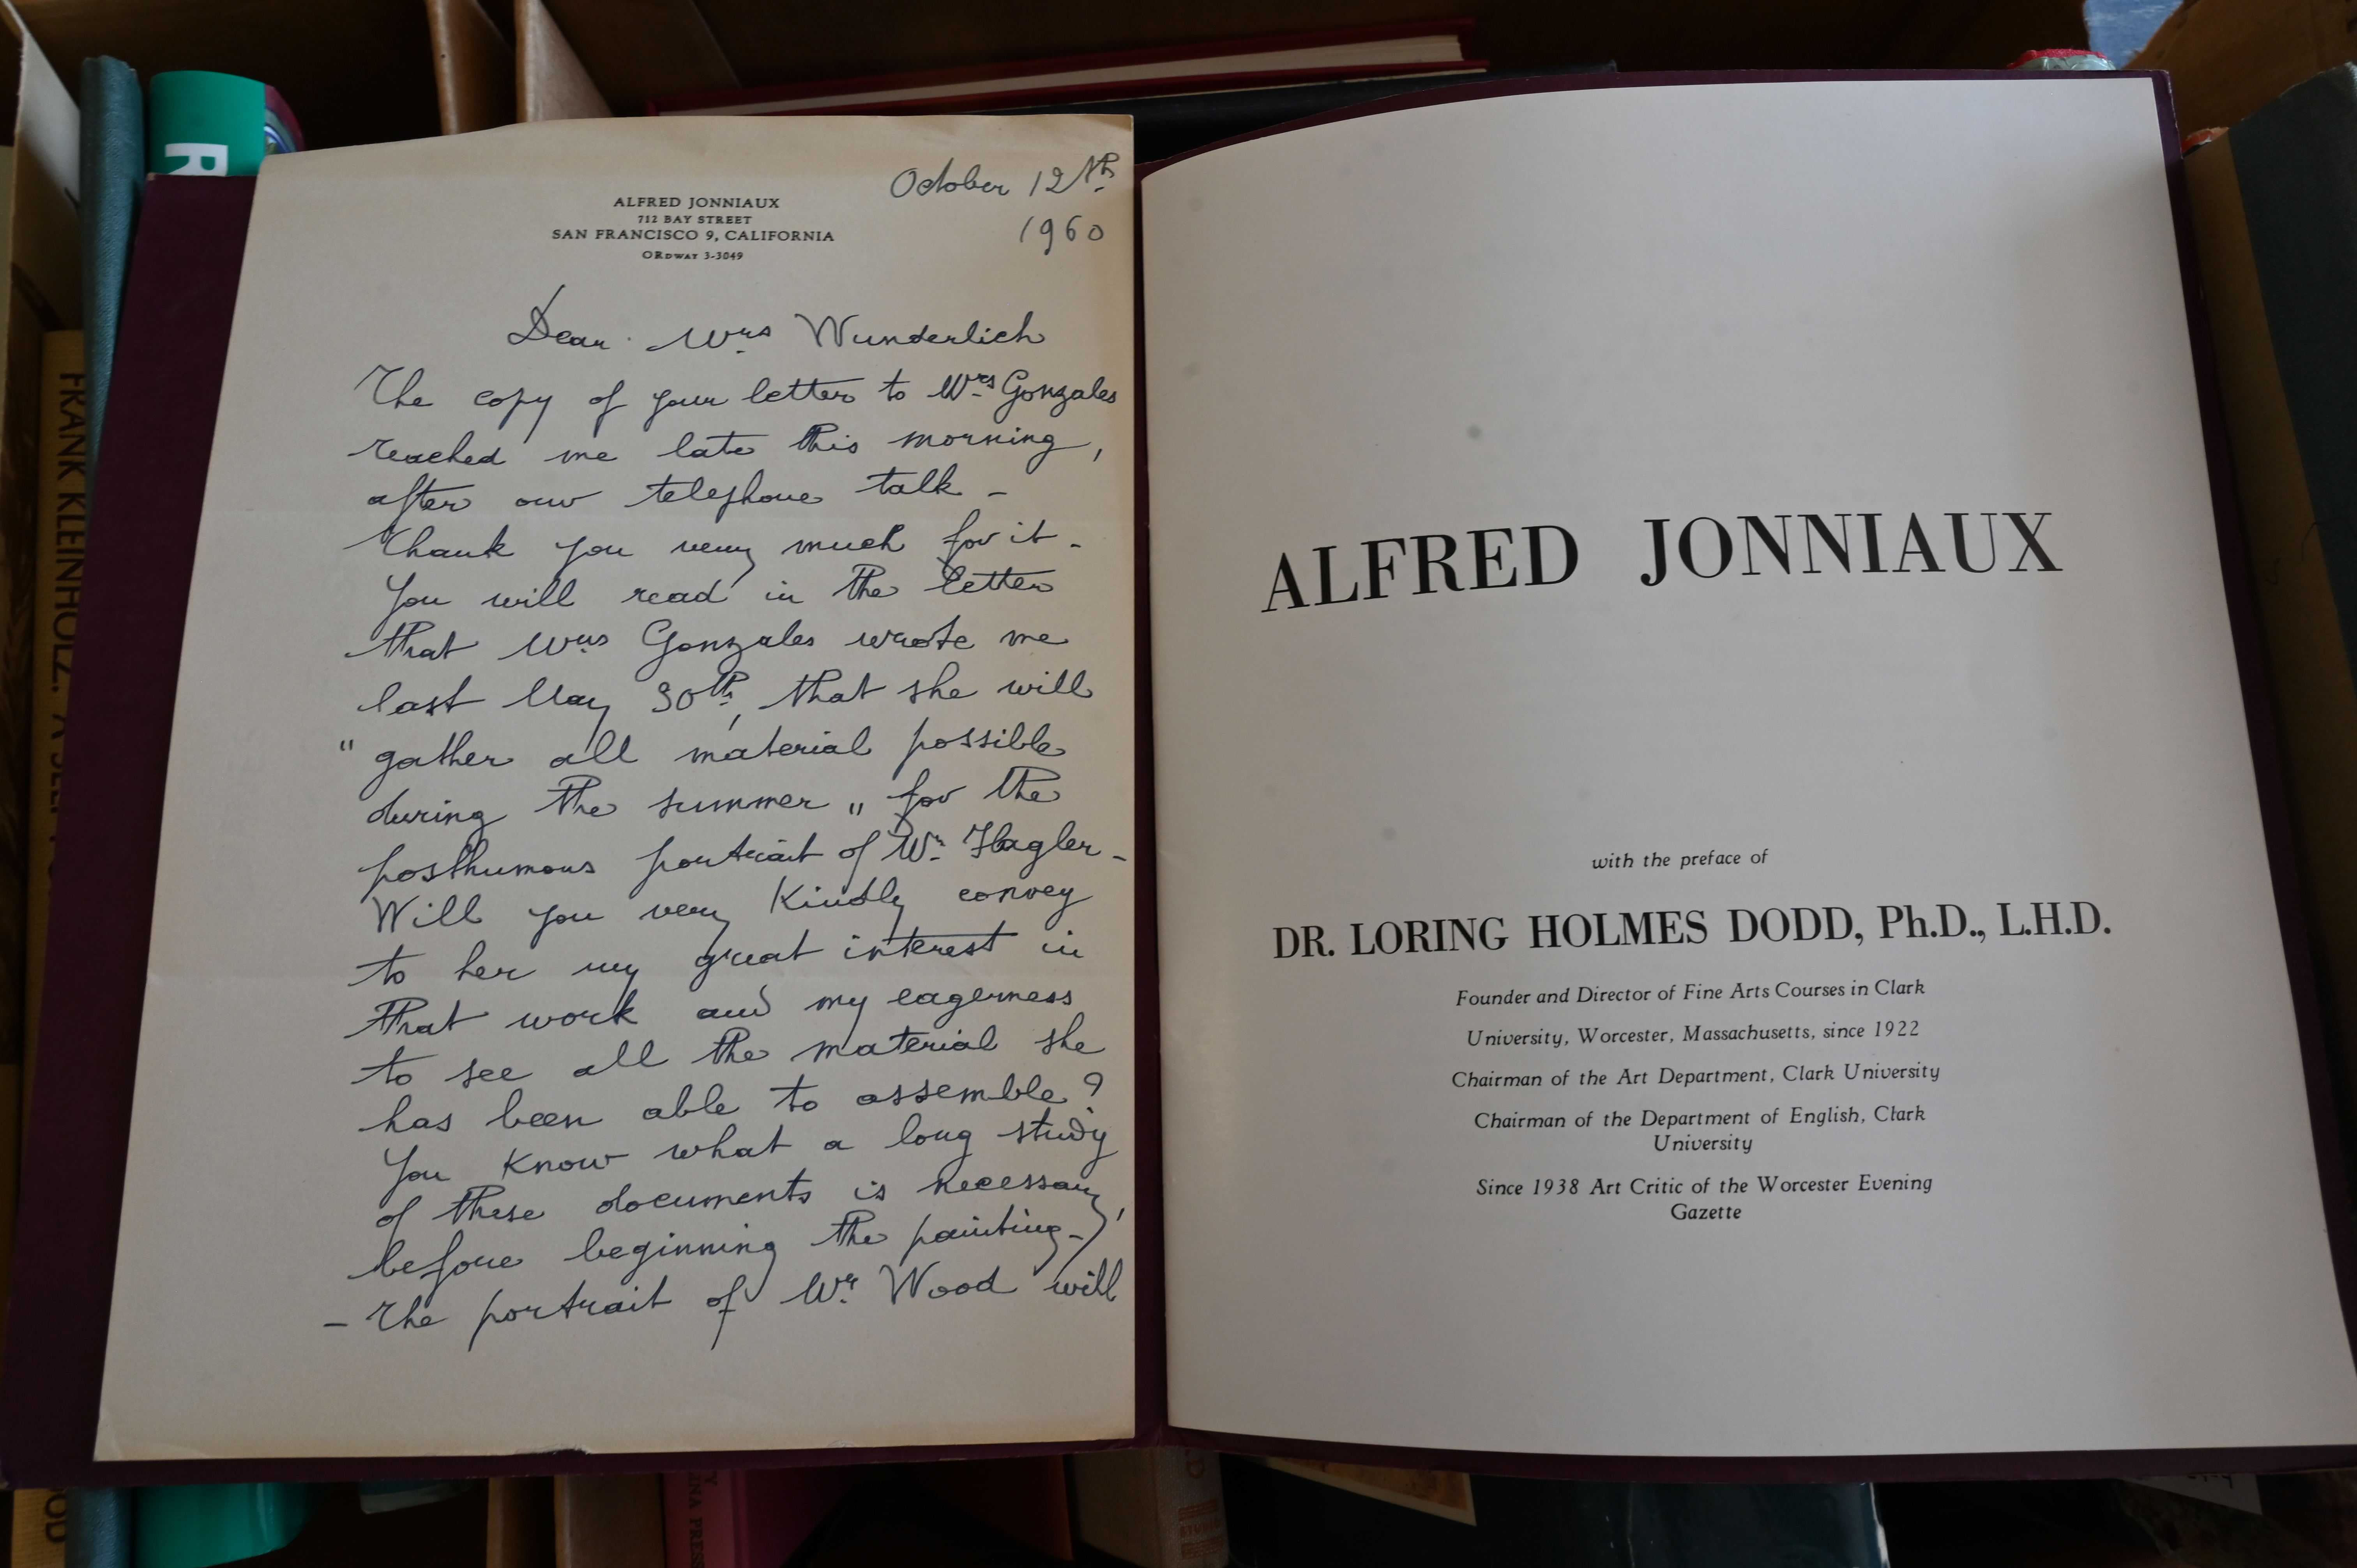 ALFRED JONNIAUX
712 BAY STREET
SAN FRANCISCO 9, CALIFORNIA
ORDWAY 3-3049
October 12th
1960
Dear Mrs Wunderlich
The copy of your letter to Mrs Gonzales
reached me late this morning,
after our telephone talk -
Thank you very much for it -
You will read in the letter
that Mrs Gonzales wrote me
last May 30th, that she will
" gather all material possible
during the summer " for the
posthumous portrait of Mr. Flagler -
Will you very Kindly convey
to her my great interest in
that work and my eagerness
to see all the material she
has been able to assemble?
You Know what a long study
of these documents is necessary,
before beginning the painting -
- The portrait of Mr. Wood will
ALFRED JONNIAUX
with the preface of
DR. LORING HOLMES DODD, Ph.D., L.H.D.
Founder and Director of Fine Arts Courses in Clark
University, Worcester, Massachusetts, since 1922
Chairman of the Art Department, Clark University
Chairman of the Department of English, Clark
University
Since 1938 Art Critic of the Worcester Evening
Gazette
R
FRANK KLEINHOLZ: A SELF